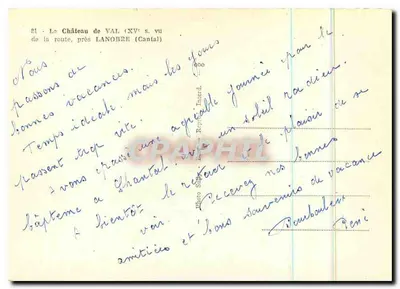 51 - Le Château de VAL (XVe s. vu
de la route, près LANOBRE (Cantal)
Nous
passons de
bonnes vacances.
Temps idéal, mais les jours
passent trop vite.
Avons une agréable journée, par le
baptème a Chantal. un soleil radieux.
A bientôt le plaisir de se
voir.
Recevez nos bonnes
amitiées et bons souvenirs de vacance
René